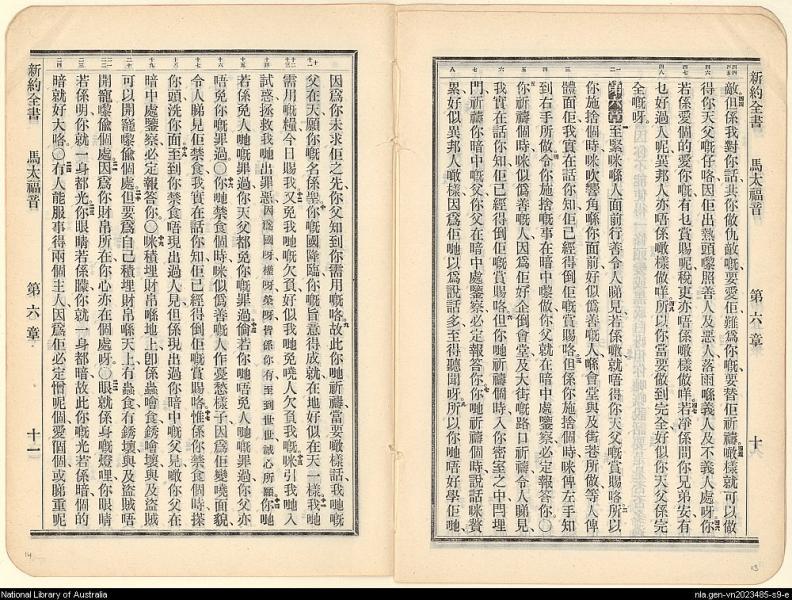 新約全書 馬太福音 第六章 十
敵但係我對你話共你做仇敵嘅要愛佢難爲你嘅要替佢祈禱噉樣就可以做
得你天父嘅仔咯因佢出熱頭嚟照善人及惡人落雨喺義人及不義人處呀你
若係愛個的愛你嘅有乜賞賜呢稅吏亦唔係噉樣做咩若淨係問你兄弟安有
乜好過人呢異邦人亦唔係噉樣做咩所以你當要做到完全好似你天父係完
全嘅呀
第六章 至緊咪喺人面前行善令人睇見若係噉就唔得你天父嘅賞賜咯所以
你施捨個時咪吹響角喺你面前好似僞善嘅人喺會堂與及街巷所做等人俾
體面佢我實在話你知佢已經得倒佢嘅賞賜咯但係你施捨個時咪俾左手知
到右手所做令你施捨嘅事在暗中嚟做你父就在暗中處鑒察必定報答你〇
你祈禱個時咪似僞善嘅人因爲佢好企倒會堂及大街嘅路口祈禱令人睇見
我實在話你知佢已經得倒佢嘅賞賜咯但你哋祈禱個時入你密室之中閂埋
門祈禱你暗中嘅父你父在暗中處鑒察必定報答你你哋祈禱個時說話咪贅
累好似異邦人噉樣因爲佢哋以爲說話多至得聽聞呀所以你哋唔好學佢哋
因爲你未求佢之先你父知到你需用嘅咯故此你哋祈禱當要噉樣話我哋嘅
父在天願你嘅名係聖你嘅國降臨你嘅旨意得成就在地好似在天一樣我哋
需用嘅糧今日賜我又免我哋嘅欠負好似我哋免曉人欠負我嘅咪引我哋入
試惑拯救我哋出罪惡因爲國呀權呀榮呀皆係你有至到世世誠心所願你哋
若係免人哋嘅罪過你天父都免你嘅罪過倘若你哋唔免人哋嘅罪過你父亦
唔免你嘅罪過〇你哋禁食個時咪似僞善嘅人作憂愁樣子因爲佢變曉面貌
令人睇見佢禁食我實在話你知佢已經得倒佢嘅賞賜咯惟係你禁食個時搽
你頭洗你面至到你禁食唔現出過人見但係現出過你暗中嘅父見噉你父在
暗中處鑒察必定報答你〇咪積埋財帛喺地上卽係蟲噲食銹噲壞與及盜賊
可以開窿嚟偸個處但要爲自己積埋財帛喺天上冇蟲食冇銹壞與及盜賊唔
開窿嚟偸個處因爲你財帛所在你心亦在個處呀〇眼就係身嘅燈哩你眼睛
若係明你就一身都光你眼睛若係矇你就一身都暗故此你嘅光若係暗個的
暗就好大咯〇冇人能服事得兩個主人因爲佢必定憎呢個愛個個或睇重呢
新約全書 馬太福音 第六章 十一
14
13
National Library of Australia
nla.gen-vn2023485-s9-e